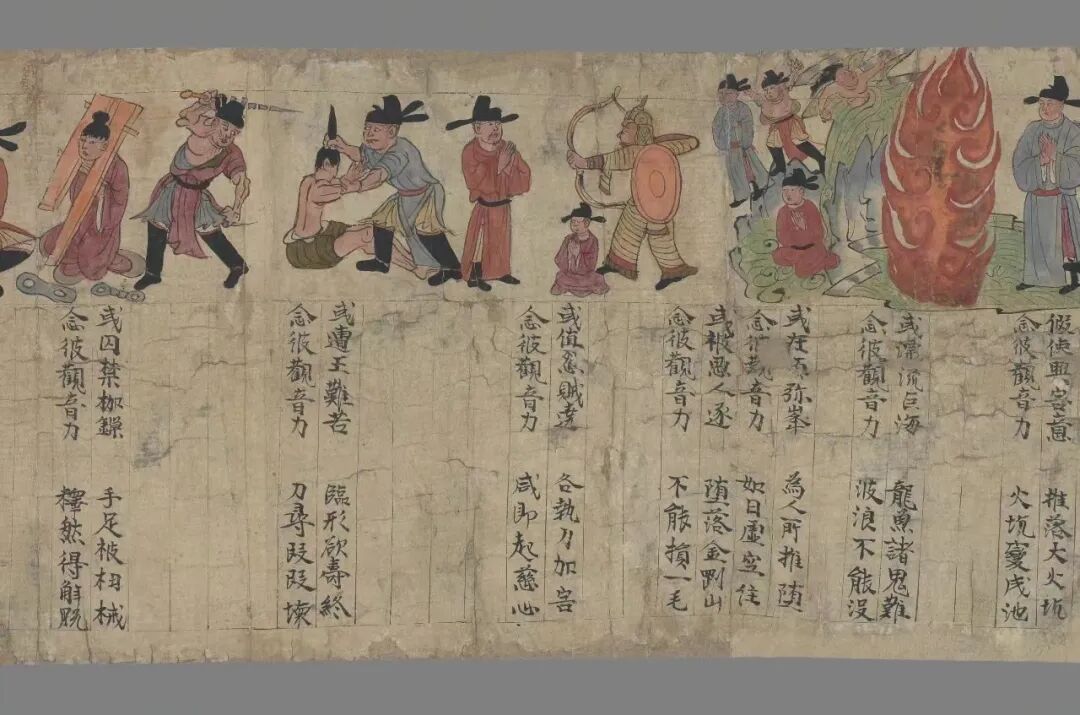 假使興害意 推落大火坑
念彼觀音力 火坑變成池
或漂流巨海 龍魚諸鬼難
念彼觀音力 波浪不能没
或在須弥峯 為人所推堕
念彼觀音力 如日虛空住
或被惡人逐 堕落金剛山
念彼觀音力 不能損一毛
或值怨賊遶 各執刀加害
念彼觀音力 咸即起慈心
或遭王難苦 臨形欲壽終
念彼觀音力 刀尋段段壞
或囚禁枷鏁 手足被杻械
念彼觀音力 釋然得解脫